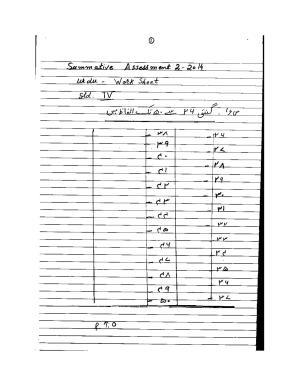 ①
Summative Assessment 2-2014
Urdu - Work Sheet
Std. IV
گنتی ۲۶ سے ۵۰ تک الفاظ میں
۲۶
۲۷
۲۸
۲۹
۳۰
۳۱
۳۲
۳۳
۳۴
۳۵
۳۶
۳۷
۳۸
۳۹
۴۰
۴۱
۴۲
۴۳
۴۴
۴۵
۴۶
۴۷
۴۸
۴۹
۵۰
P.T.O